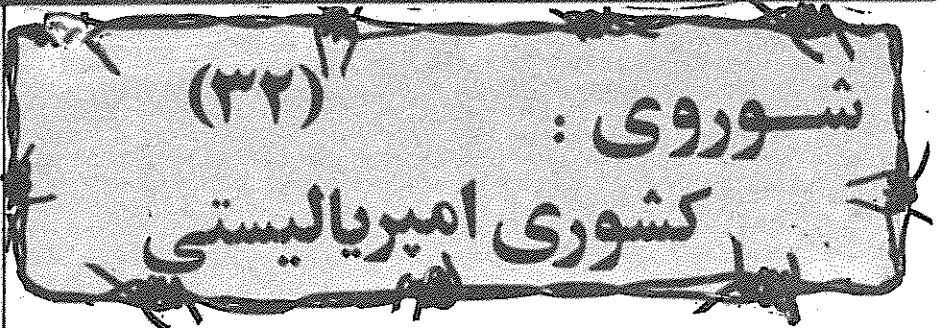 شـوروی : (۳۲)
کشوری امپریالیستی